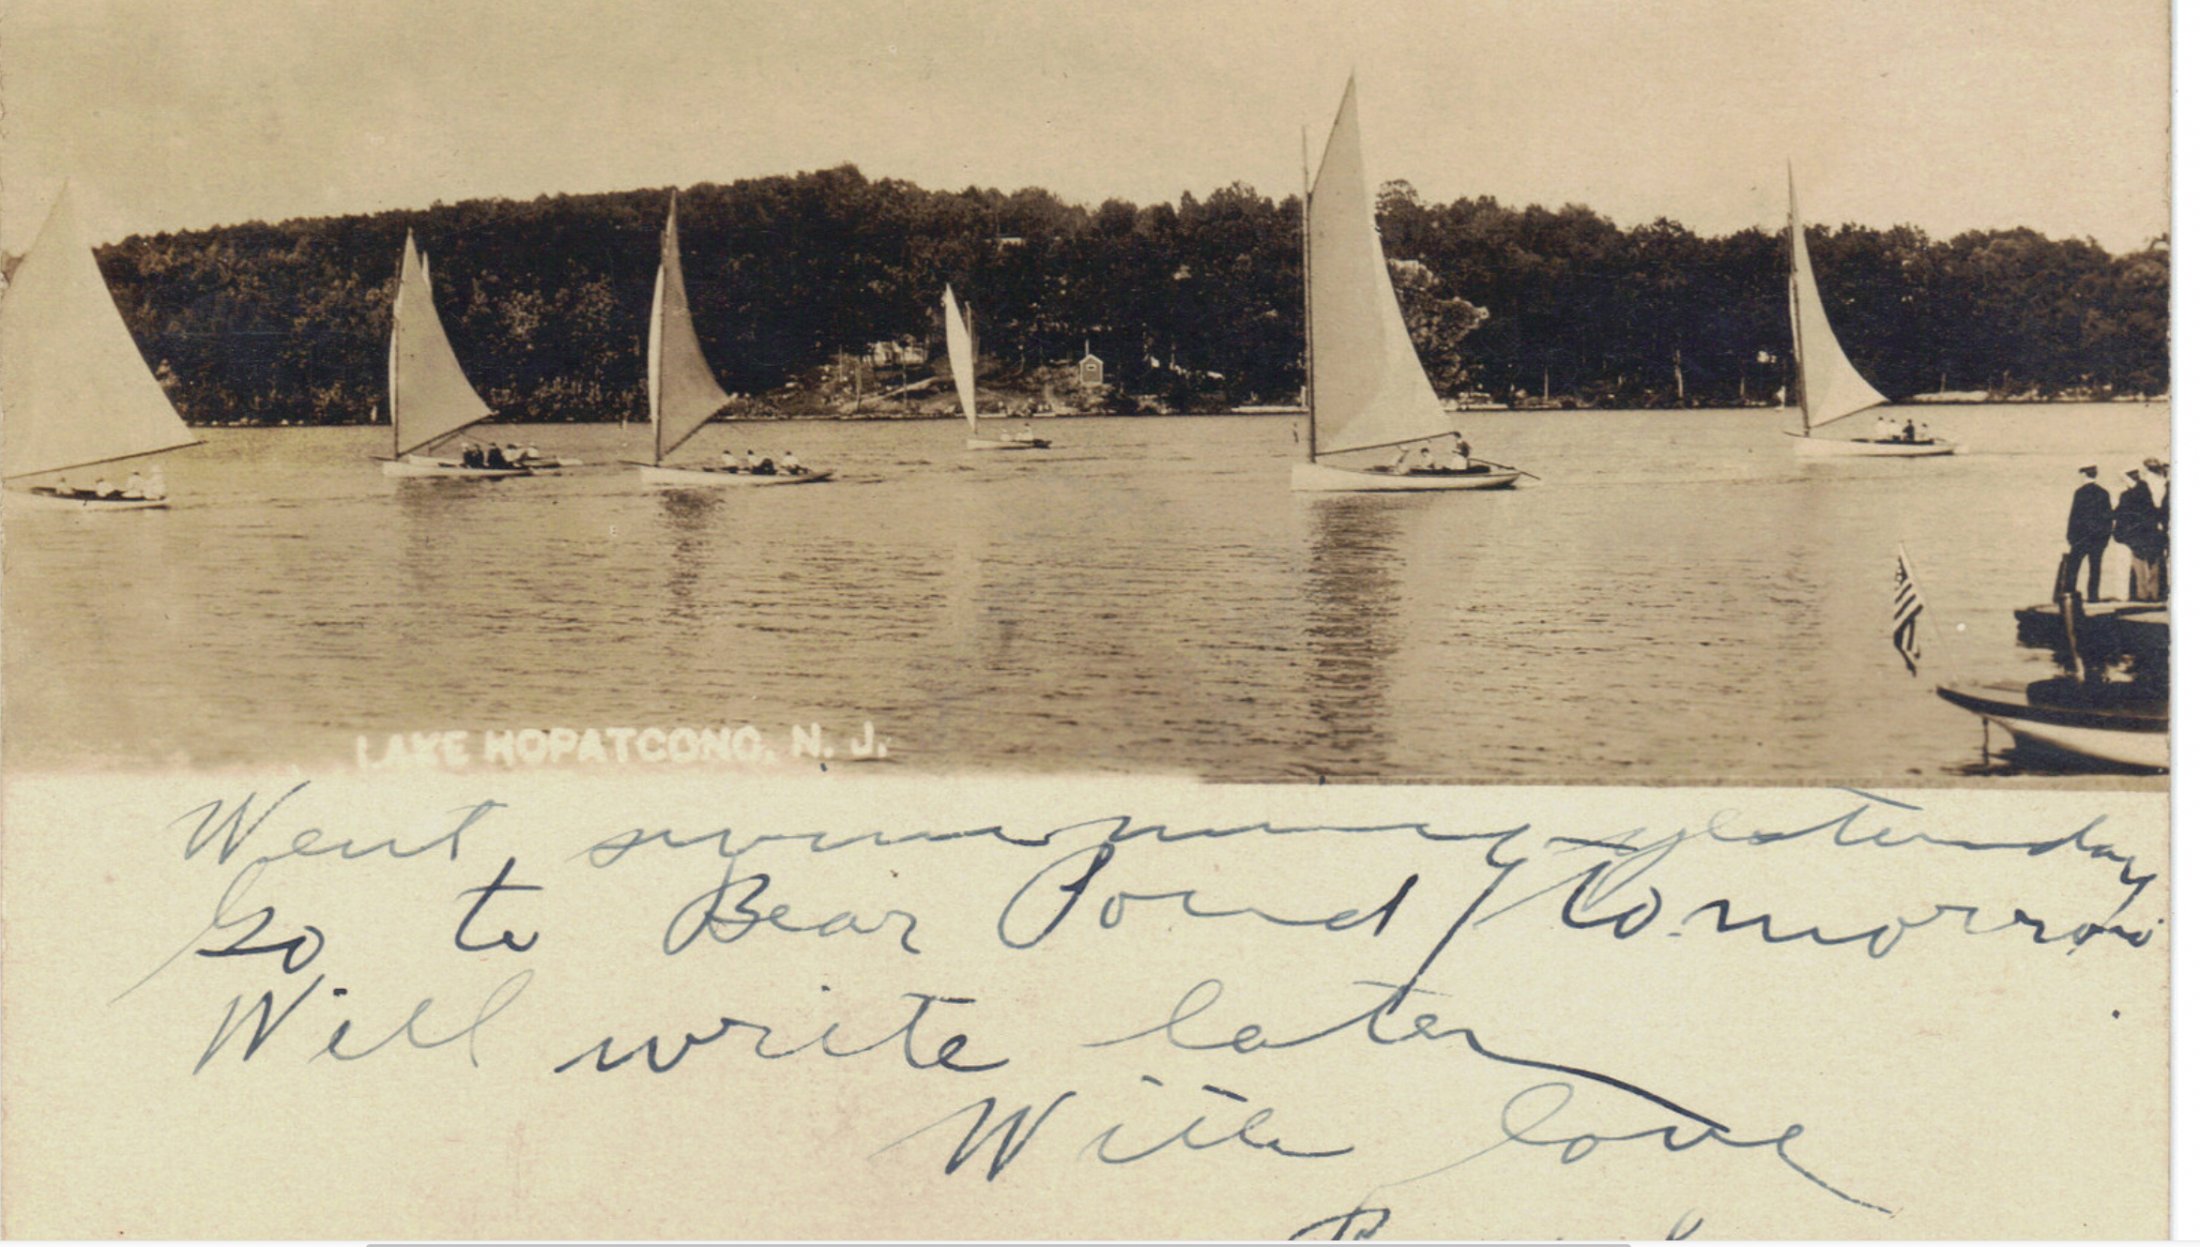 LAKE HOPATCONG, N. J.
Went swimming yesterday
Go to Bear Pond tomorrow
Will write later
With love